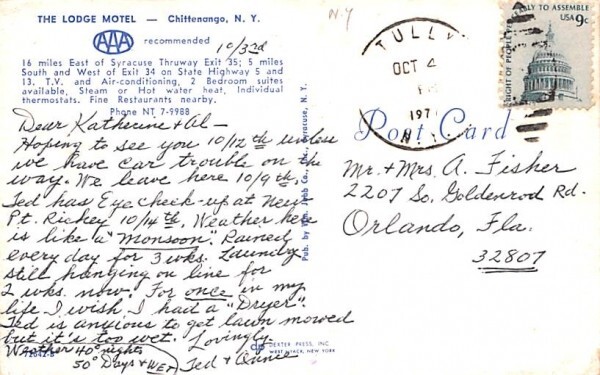 THE LODGE MOTEL — Chittenango, N. Y.
AAA recommended
16 miles East of Syracuse Thruway Exit 35; 5 miles
South and West of Exit 34 on State Highway 5 and
13. T.V. and Air-conditioning, 2 Bedroom suites
available, Steam or Hot water heat, Individual
thermostats. Fine Restaurants nearby.
Phone NT 7-9988
10/3rd
Dear Katherine & Al —
Hoping to see you 10/12th unless
we have car trouble on the
way. We leave here 10/9th as
Ted has Eye check-up at New
Pt. Richey 10/14th. Weather here
is like a "Monsoon". Rained
every day for 3 wks. Laundry
still hanging on line for
2 wks. now. For once in my
life I wish I had a "Dryer".
Ted is anxious to get lawn mowed
but it's too wet. Lovingly,
Weather 40° nights
50° Days & WET
Ted & Annie
Pub. by Wm. Jubb Co., Inc., Syracuse, N. Y.
DEXTER PRESS, INC.
WEST NYACK, NEW YORK
N-Y
TULLY
OCT 4
197
N.
RIGHT OF PEOPLE
LY TO ASSEMBLE
USA 9c
Post Card
Mr. & Mrs. A. Fisher
2207 So. Goldenrod Rd.
Orlando, Fla.
32807